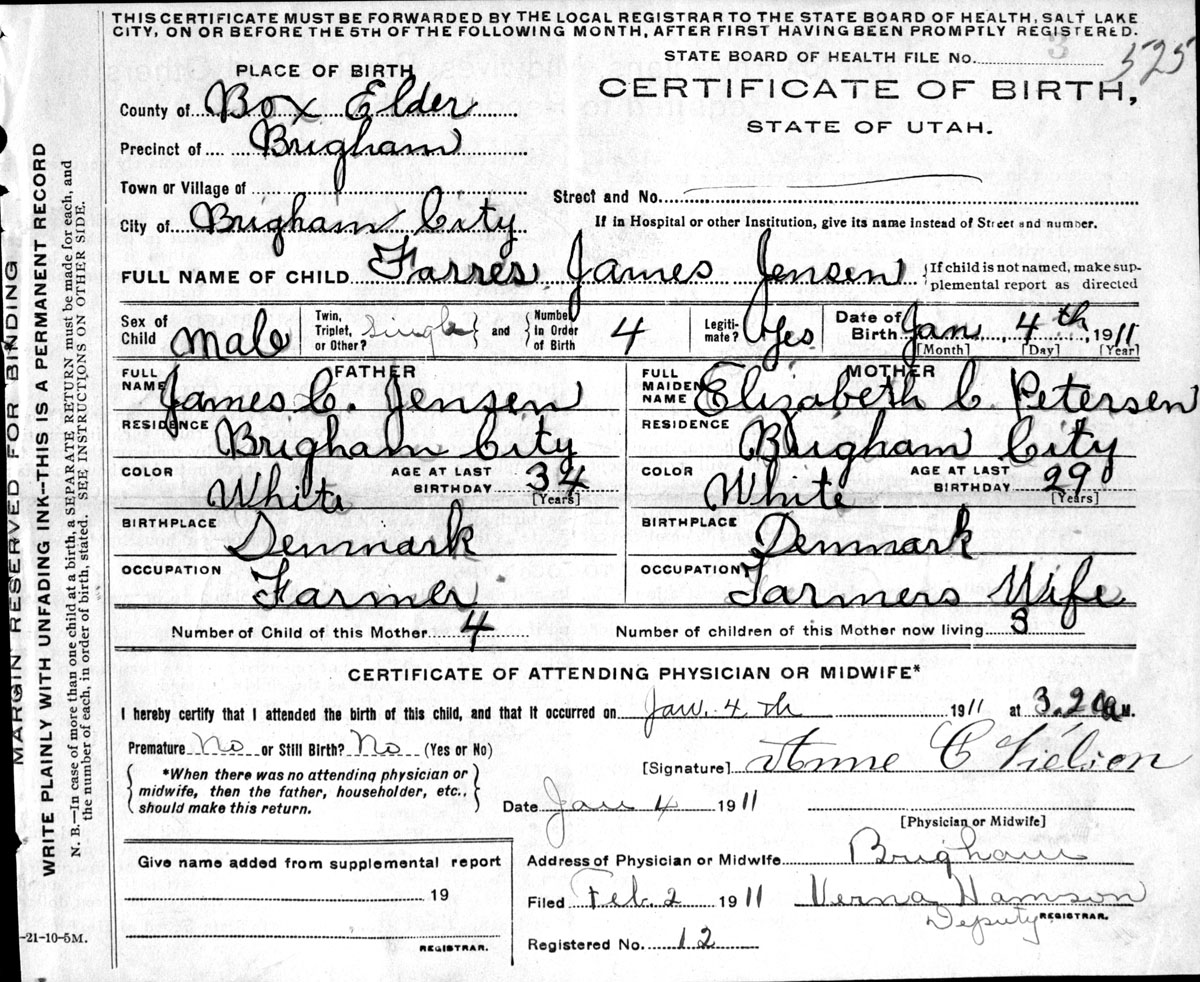 THIS CERTIFICATE MUST BE FORWARDED BY THE LOCAL REGISTRAR TO THE STATE BOARD OF HEALTH, SALT LAKE
CITY, ON OR BEFORE THE 5TH OF THE FOLLOWING MONTH, AFTER FIRST HAVING BEEN PROMPTLY REGISTERED.
STATE BOARD OF HEALTH FILE No. 3 525
PLACE OF BIRTH
CERTIFICATE OF BIRTH,
STATE OF UTAH.
County of Box Elder
Precinct of Brigham
Town or Village of
Street and No.
City of Brigham City
If in Hospital or other Institution, give its name instead of Street and number.
FULL NAME OF CHILD Farres James Jensen {If child is not named, make sup-
plemental report as directed
Sex of Child Male
Twin, Triplet, or Other? Single and Number in Order of Birth 4
Legiti-mate? Yes
Date of Birth Jan 4th, 1911
[Month] [Day] [Year]
FATHER
FULL NAME James C. Jensen
RESIDENCE Brigham City
COLOR White AGE AT LAST BIRTHDAY 34 [Years]
BIRTHPLACE Denmark
OCCUPATION Farmer
MOTHER
FULL MAIDEN NAME Elizabeth C. Petersen
RESIDENCE Brigham City
COLOR White AGE AT LAST BIRTHDAY 29 [Years]
BIRTHPLACE Denmark
OCCUPATION Farmers Wife
Number of Child of this Mother 4 Number of children of this Mother now living 3
CERTIFICATE OF ATTENDING PHYSICIAN OR MIDWIFE*
I hereby certify that I attended the birth of this child, and that it occurred on Jan. 4th 1911 at 3.20 a M.
Premature No or Still Birth? No (Yes or No)
{*When there was no attending physician or
midwife, then the father, householder, etc.,
should make this return.}
[Signature] Anne C
Date Jan 4 1911
[Physician or Midwife]
Give name added from supplemental report
19
REGISTRAR.
Address of Physician or Midwife Brigham
Filed Feb. 2 1911 Verna
Deputy REGISTRAR.
Registered No. 12
-21-10-5M.
MARGIN RESERVED FOR BINDING
WRITE PLAINLY WITH UNFADING INK--THIS IS A PERMANENT RECORD
N. B.—In case of more than one child at a birth, a SEPARATE RETURN must be made for each, and
the number of each, in order of birth, stated. SEE INSTRUCTIONS ON OTHER SIDE.